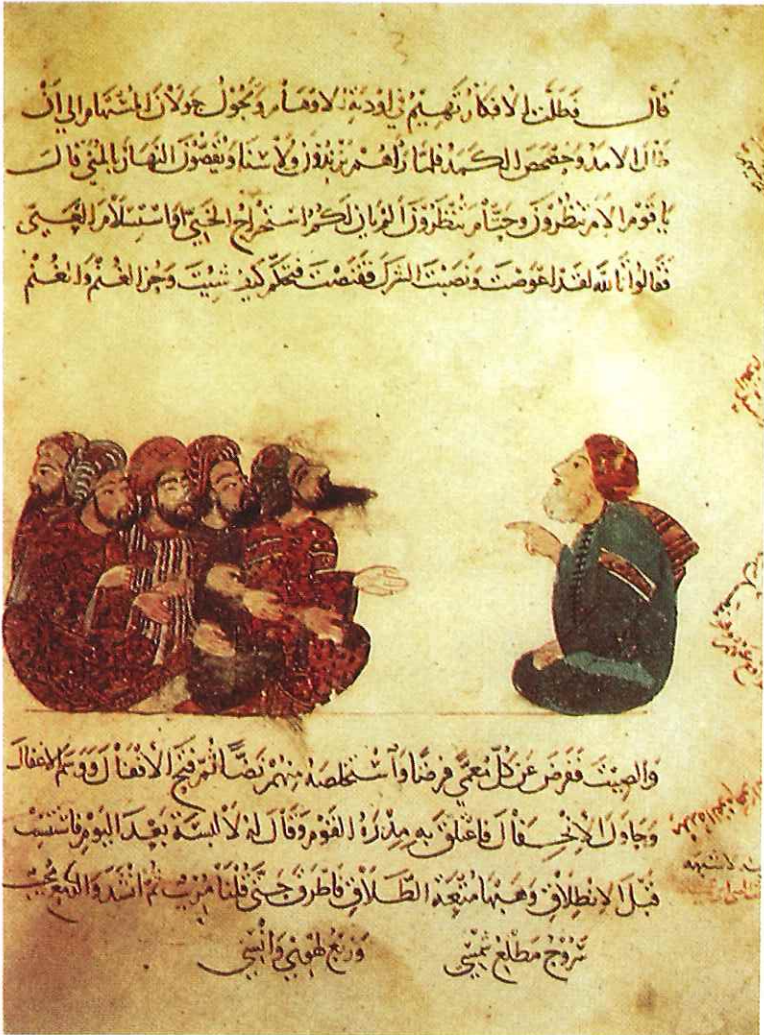 قال فظلت الافكار تهيم في اودية الاوهام وتجول جولان المستهام الى ان
طال الامد وحصحص الكمد فلما رآهم يزندون ولا سنا ويقضون النهار بالمنى قال
يا قوم الام تنظرون وحتام تنظرون الم يان لكم استخراج الخبي او استسلام الغبي
فقالوا تالله لقد اعوصت ونصبت الشرك فقنصت فتحكم كيف شيت وحز الغنم
والصيت ففرض عن كل معمى فرضا واستخلصه منهم نضا ثم فتح الاقفال ووسم الاغفال
وحاول الاجفال فاعتلق به مدره القوم وقال له لا لبسة بعد اليوم فاستنسب
قبل الانطلاق وهبها متعة الطلاق فاطرق حتى قلنا مريب ثم انشد والدمع مجيب
سروج مطلع شمسي وربع لهوي وانسي